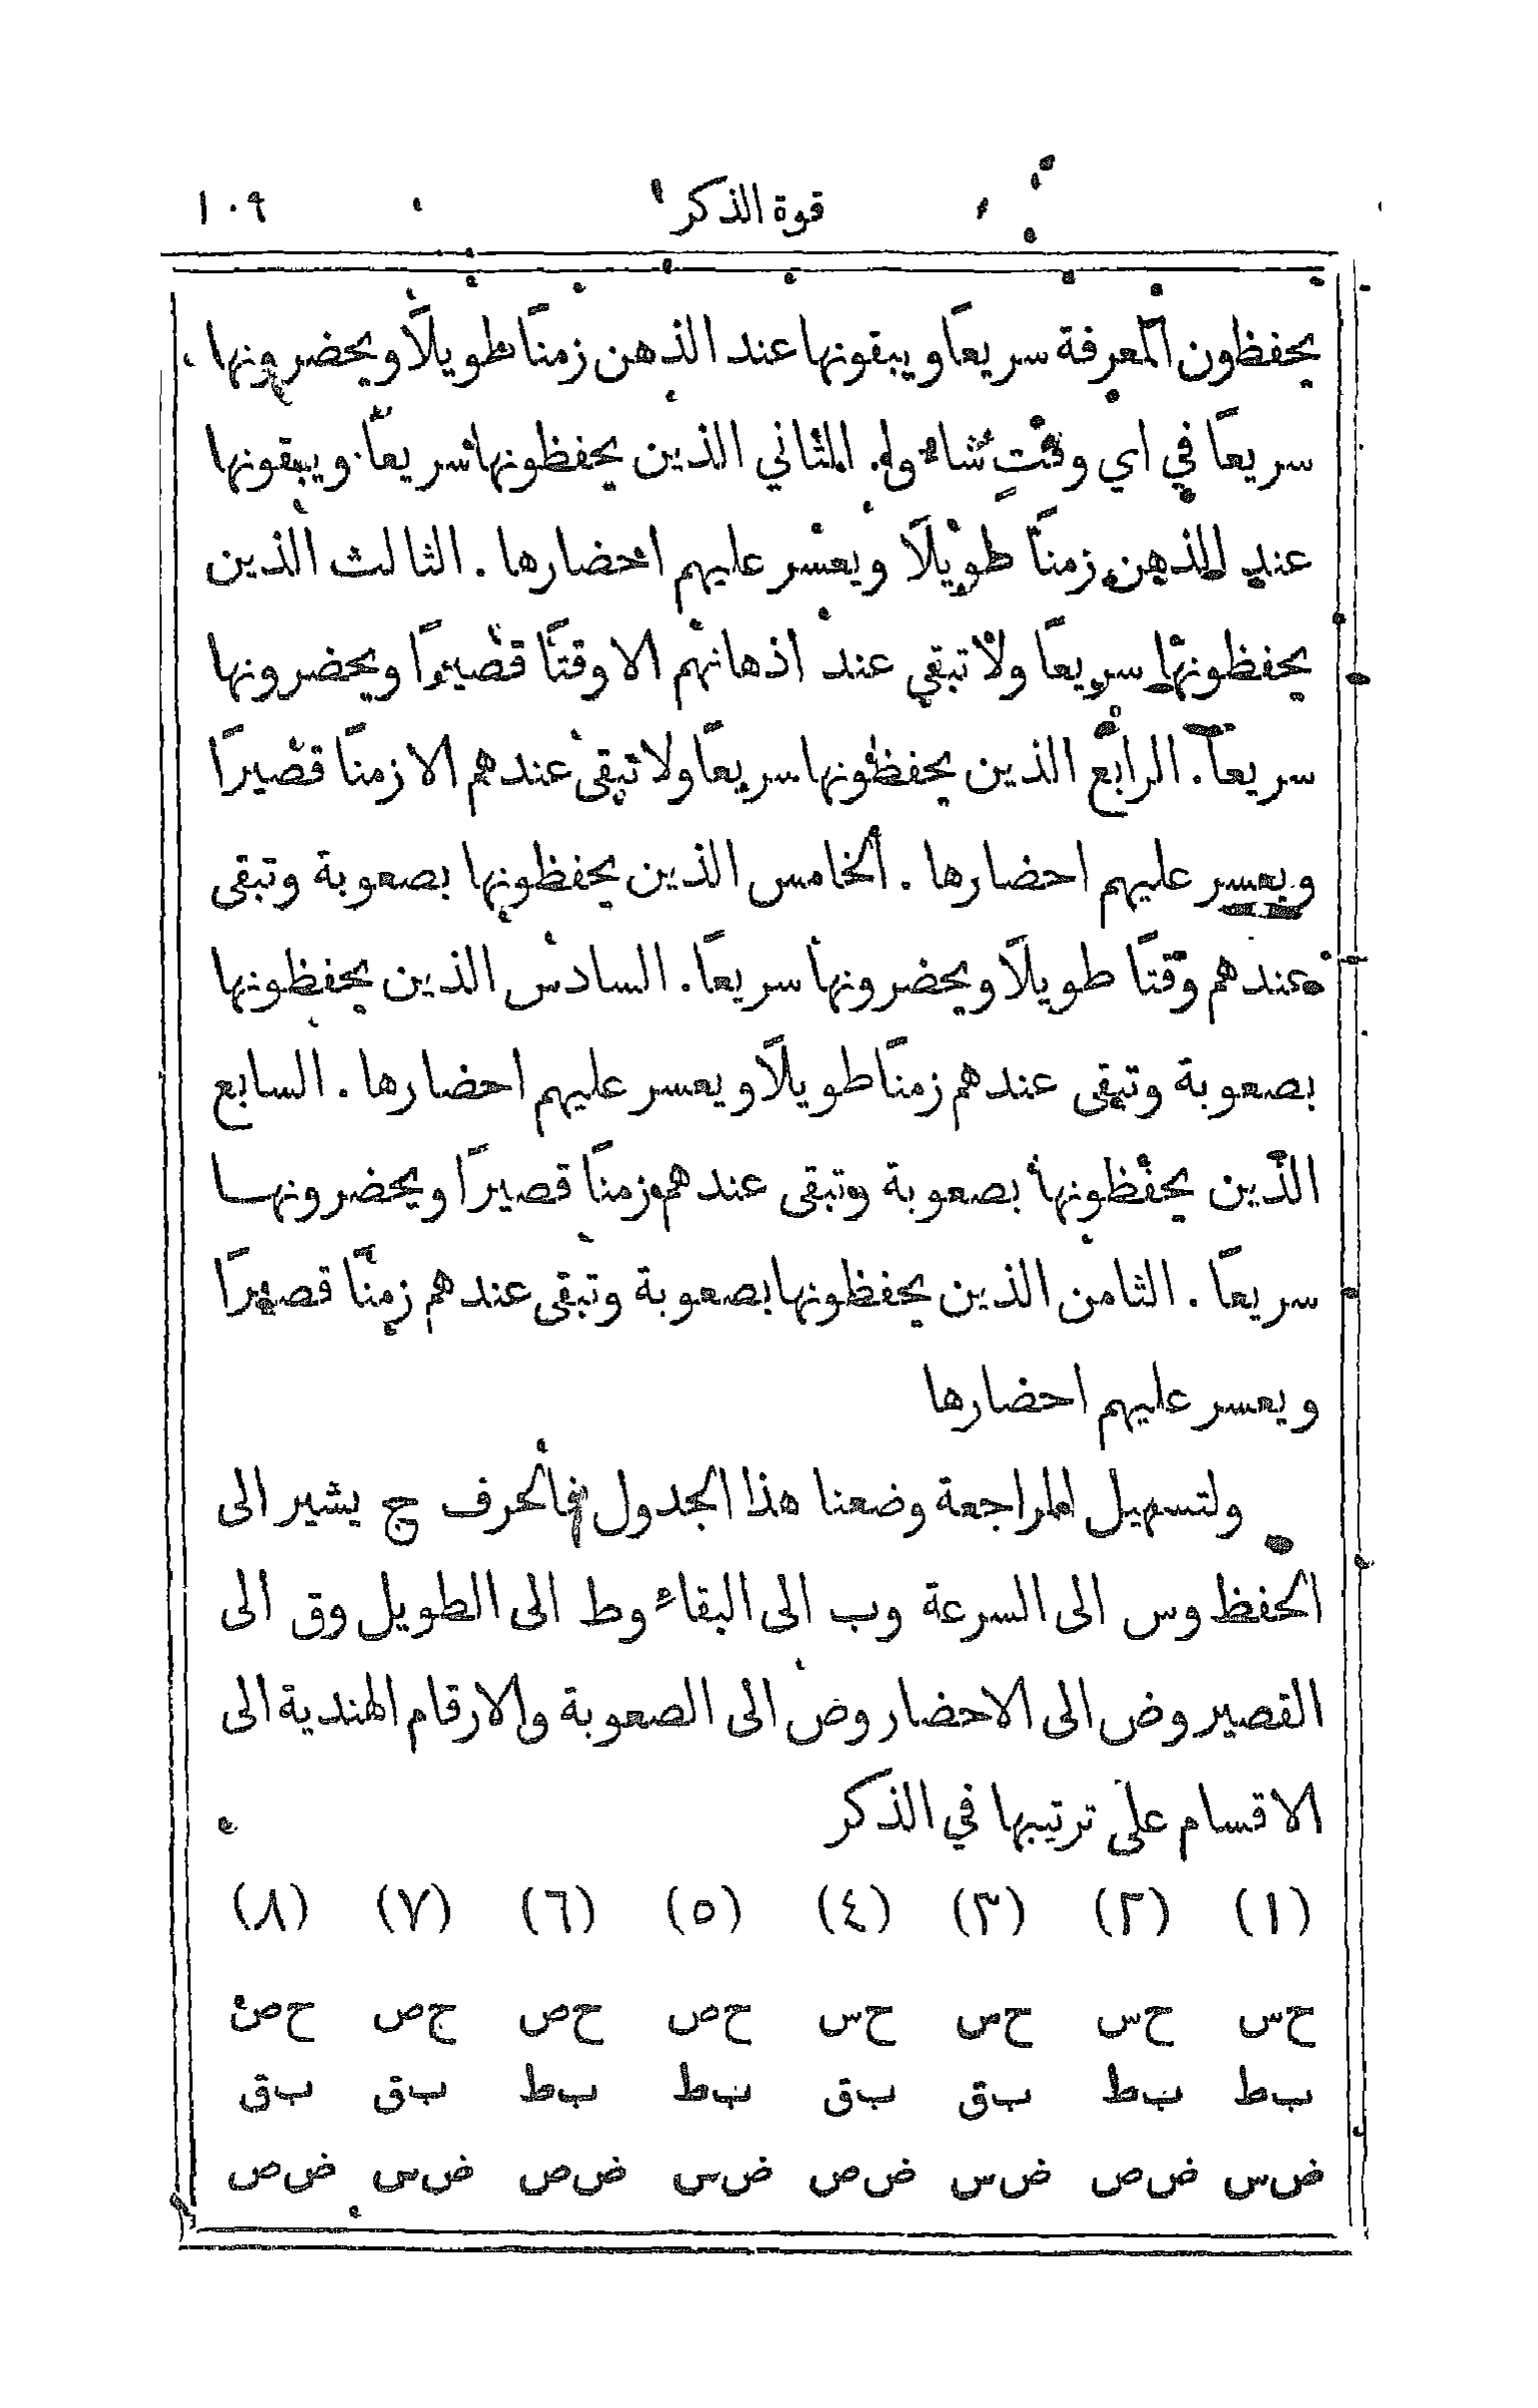 قوة الذكر ١٠٩
يحفظون المعرفة سريعًا ويبقونها عند الذهن زمنًا طويلًا ويحضرونها
سريعًا في اي وقتٍ شاءُوا. الثاني الذين يحفظونها سريعًا ويبقونها
عند الذهن زمنًا طويلًا ويعسر عليهم احضارها. الثالث الذين
يحفظونها سريعًا ولا تبقى عند اذهانهم الا وقتًا قصيرًا ويحضرونها
سريعًا. الرابع الذين يحفظونها سريعًا ولا تبقى عندهم الا زمنًا قصيرًا
ويعسر عليهم احضارها. الخامس الذين يحفظونها بصعوبة وتبقى
عندهم وقتًا طويلًا ويحضرونها سريعًا. السادس الذين يحفظونها
بصعوبة وتبقى عندهم زمنًا طويلًا ويعسر عليهم احضارها. السابع
الذين يحفظونها بصعوبة وتبقى عندهم زمنًا قصيرًا ويحضرونها
سريعًا. الثامن الذين يحفظونها بصعوبة وتبقى عندهم زمنًا قصيرًا
ويعسر عليهم احضارها
ولتسهيل المراجعة وضعنا هذا الجدول فالحرف ح يشير الى
الحفظ وس الى السرعة وب الى البقاء وط الى الطويل وق الى
القصير وض الى الاحضار وص الى الصعوبة والارقام الهندية الى
الاقسام على ترتيبها في الذكر
(١) (٢) (٣) (٤) (٥) (٦) (٧) (٨)
ح س ح س ح س ح س ح ص ح ص ح ص ح ص
ب ط ب ط ب ق ب ق ب ط ب ط ب ق ب ق
ض س ض ص ض س ض ص ض س ض ص ض س ض ص